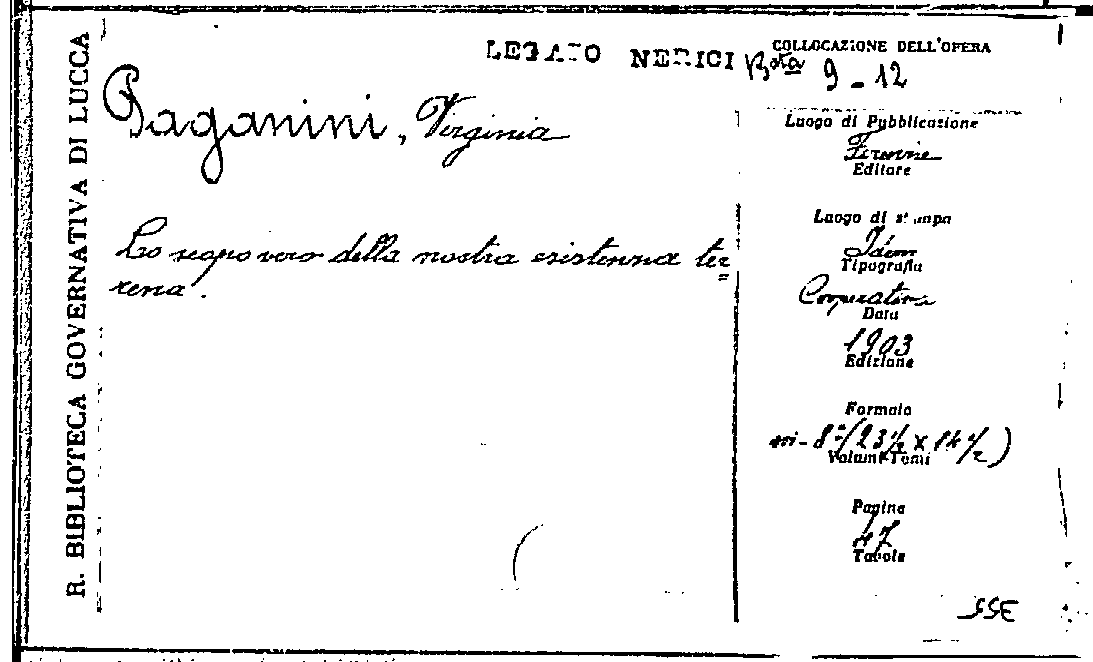 R. BIBLIOTECA GOVERNATIVA DI LUCCA
LEGATO NERICI
COLLOCAZIONE DELL'OPERA
Bta 9-12
Paganini, Virginia
Lo scopo vero della nostra esistenza ter=
rena.
Luogo di Pubblicazione
Firenze
Editore
Luogo di stampa
Idem
Tipografia
Cooperativa
Data
1903
Edizione
Formato
in-8°(23 1/2 x 14 1/2)
Volumi Tomi
Pagine
47
Tavole